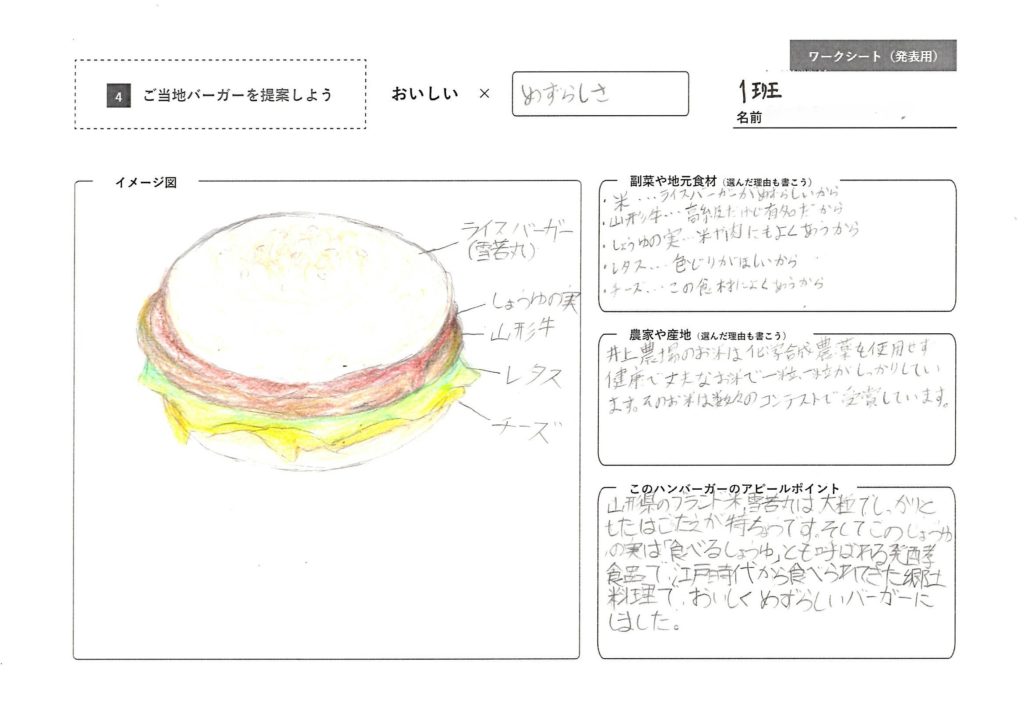 ワークシート（発表用）
4 ご当地バーガーを提案しよう
おいしい × めずらしさ
1班
名前
イメージ図
ライスバーガー
(雪若丸)
しょうゆの実
山形牛
レタス
チーズ
副菜や地元食材（選んだ理由も書こう）
・米…ライスバーガーがめずらしいから
・山形牛…高級だけど有名だから
・しょうゆの実…米や肉にもよくあうから
・レタス…色どりがほしいから
・チーズ…この食材によくあうから
農家や産地（選んだ理由も書こう）
井上農場のお米は化学合成農薬を使用せず
健康で丈夫なお米で一粒一粒がしっかりしてい
ます。そのお米は数々のコンテストで受賞しています。
このハンバーガーのアピールポイント
山形県のブランド米,雪若丸は大粒でしっかりと
したはごたえが特ちょうです。そしてこのしょうゆ
の実は「食べるしょうゆ」とも呼ばれる発酵
食品で、江戸時代から食べられてきた郷土
料理で、おいしくめずらしいバーガーに
しました。